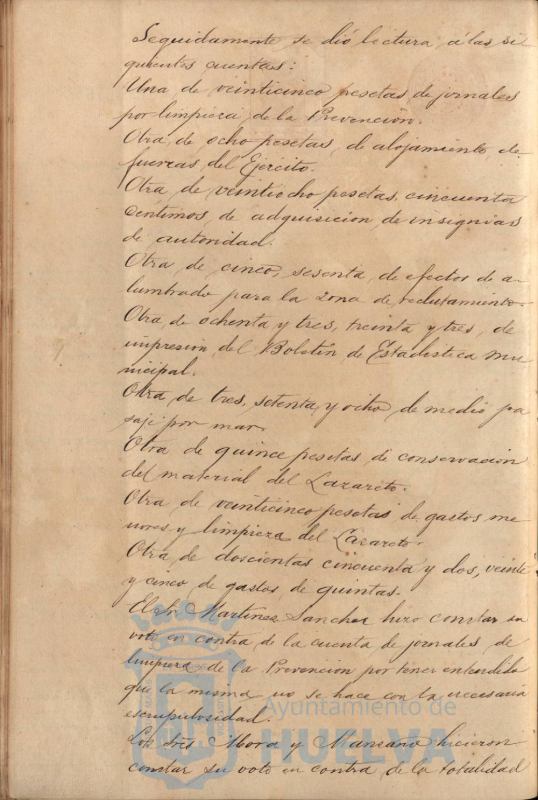 Seguidamente se dió lectura á las si
guientes cuentas:
Una de veinticinco pesetas de jornales
por limpieza de la Prevención.
Otra de ocho pesetas, de alojamiento de
fuerzas del Ejército.
Otra de veintiocho pesetas, cincuenta
centimos, de adquisicion de insignias
de autoridad.
Otra de cinco, sesenta, de efectos de a-
lumbrado para la zona de reclutamiento.
Otra de ochenta y tres, treinta y tres, de
impresión del Boletín de Estadistica mu
nicipal.
Otra de tres, setenta y ocho de medio pa
saje por mar.
Otra de quince pesetas de conservacion
del material del Lazareto.
Otra de veinticinco pesetas de gastos me
nores y limpieza del Lazareto.
Otra de doscientas cincuenta y dos, veinte
y cinco de gastos de quintas.
El Sr. Martinez Sanchez hizo constar su
voto en contra de la cuenta de jornales de
limpieza de la Prevencion por tener entendido
que la misma no se hace con la necesaria
escrupulosidad.
Los Sres Mora y Manzano hicieron
constar su voto en contra de la totalidad
Ayuntamiento de
HUELVA